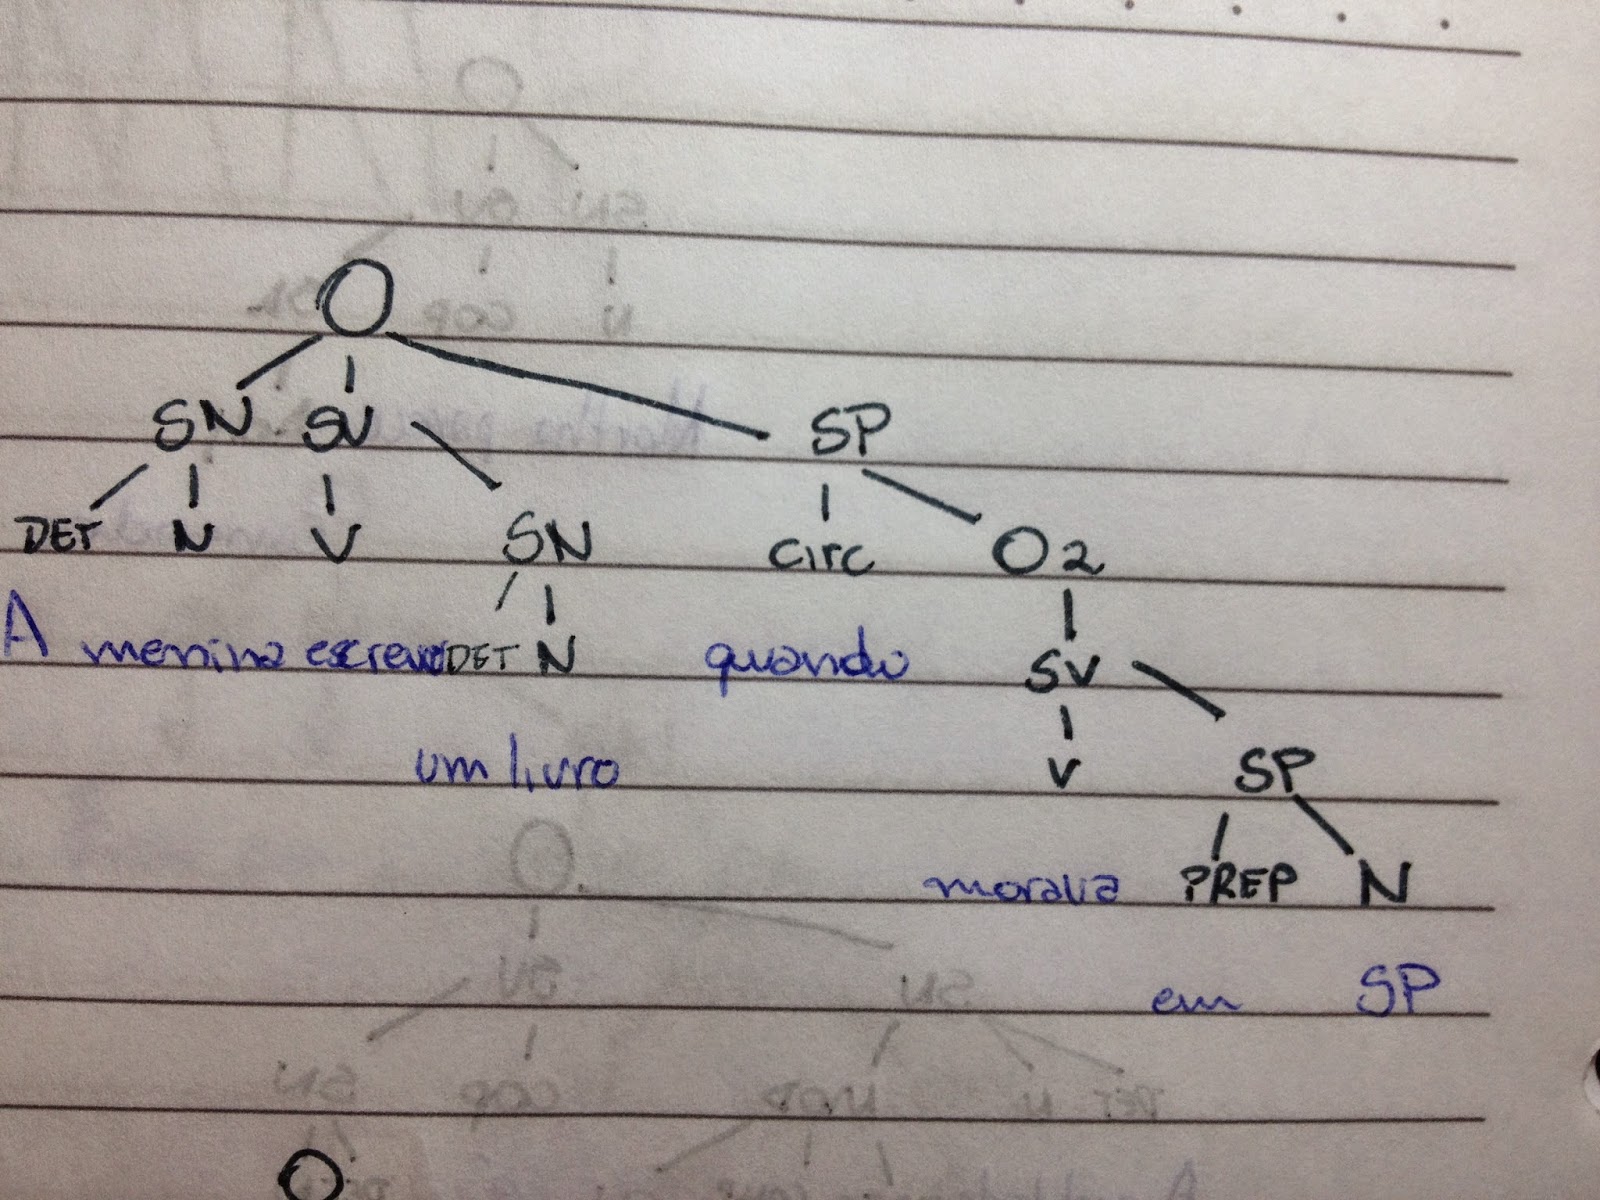 O
SN SV SP
DET N V SN circ O2
A menina escreveu DET N quando SV
um livro V SP
morava PREP N
em SP
O